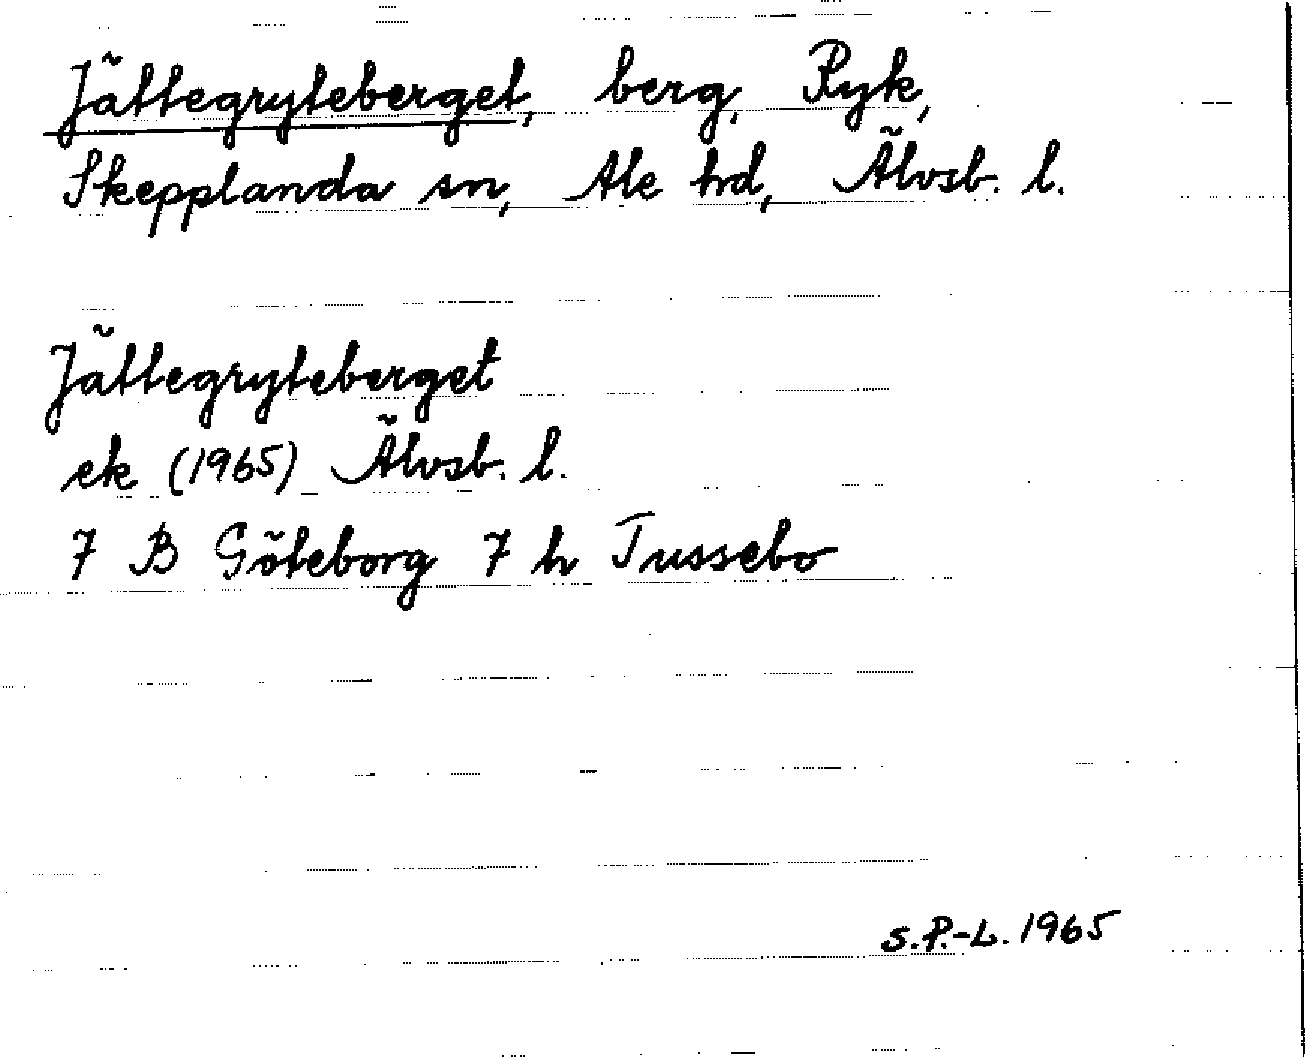 Jättegryteberget, berg, Ryk,
Skepplanda sn, Ale hd, Älvsb. l.
Jättegryteberget
ek (1965) Älvsb. l.
7 B Göteborg 7 h Tussebo
S.P.-L. 1965